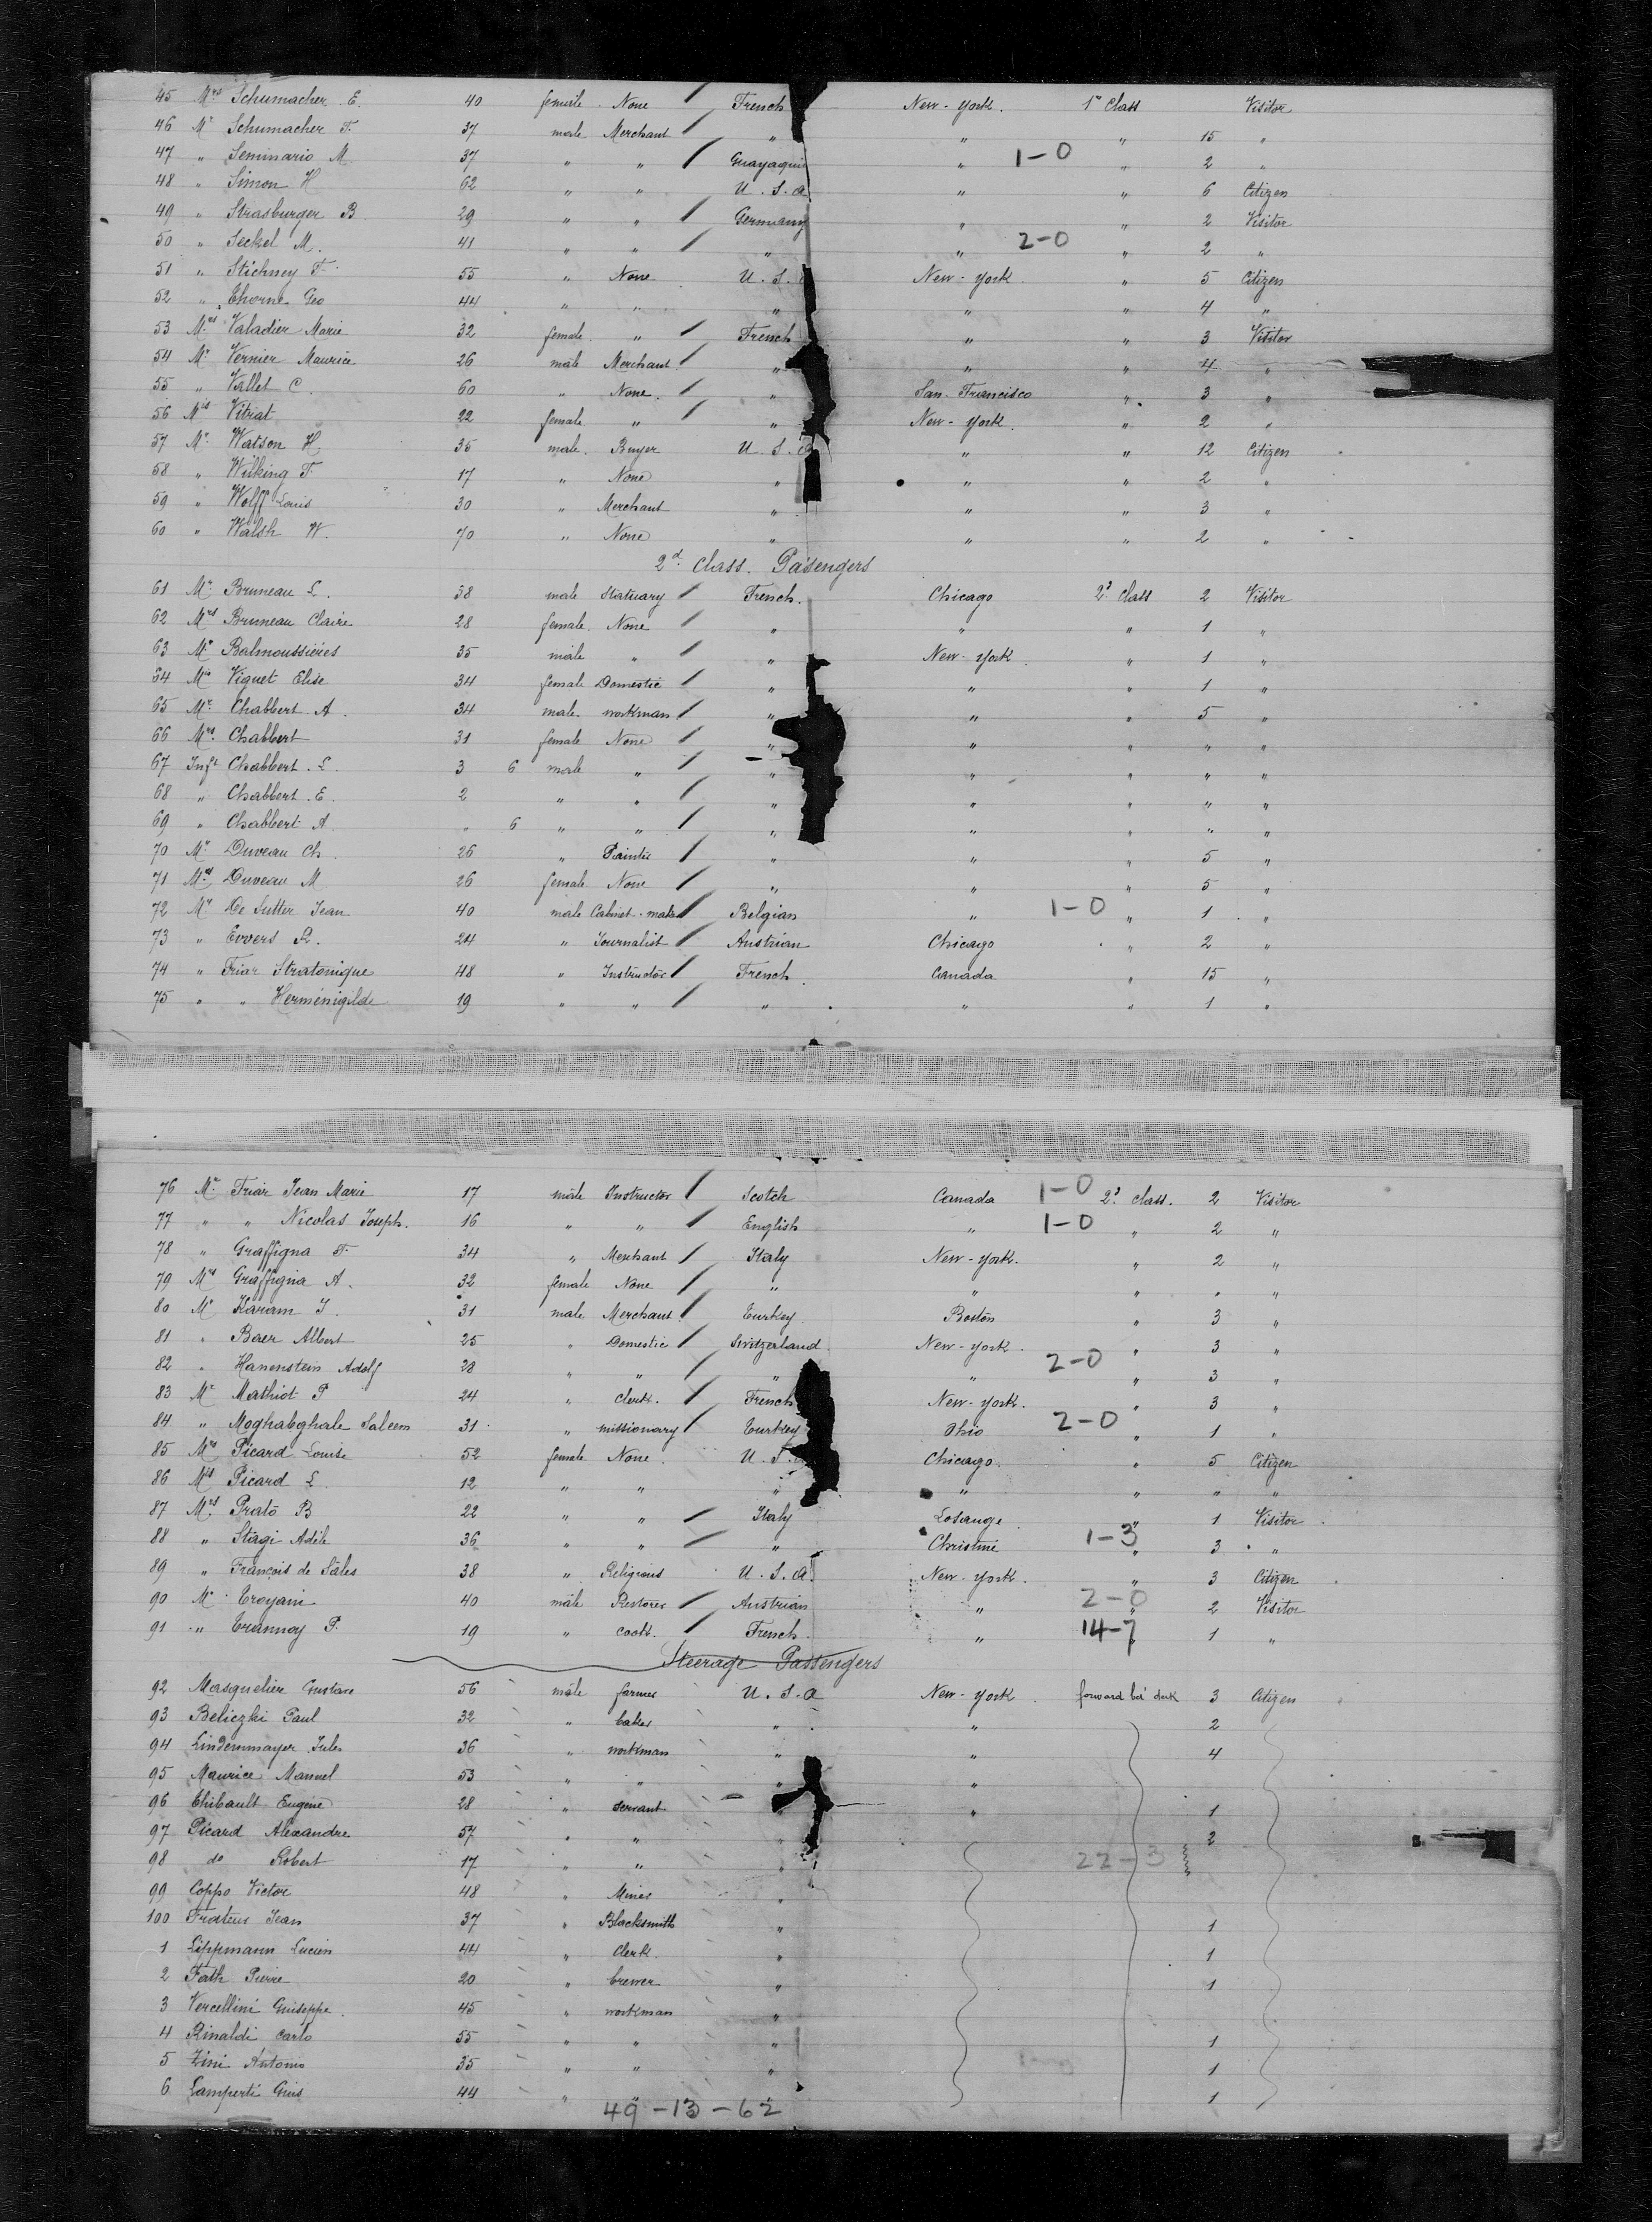 45 Mrs Schumacher E. 40 female None French New-York. 1st Class Visitor
46 Mr Schumacher F. 37 male Merchant " " " 15 "
47 " Seminario M 37 " " Guayaquil " 1-0 " 2 "
48 " Simon H 62 " " U.S.A " " 6 Citizen
49 " Strasburger B 29 " " Germany " " 2 Visitor
50 " Seckel M. 41 " " " " 2-0 " 2 "
51 " Stichney F. 55 " None U.S. New-York. " 5 Citizen
52 " Thorne Geo 44 " " " " " 4 "
53 Mrs Valadier Marie 32 female " French " " 3 Visitor
54 Mr Vernier Maurice 26 male Merchant " " " 4 "
55 " Vallet C. 60 " None. " San Francisco " 3 "
56 Mis Vitrat 22 female " " New-York. " 2 "
57 Mr Watson H 35 male. Buyer U.S.a " " 12 Citizen
58 " Wilking F. 17 " None " " " 2 "
59 " Wolff Louis 30 " Merchant " " " 3 "
60 " Walsh W. 70 " None " " " 2 "
2d Class. Passengers
61 Mr Bruneau L. 38 male Statuary French. Chicago 2d class 2 Visitor
62 Mrs Bruneau Claire 28 female. None " " " 1 "
63 Mr Balmoussières 35 male " " New-York. " 1 "
64 Mis Viguet Elise 34 female Domestic " " " 1 "
65 Mr Chabbert A. 34 male. workman " " " 5 "
66 Mrs Chabbert 31 female None " " " " "
67 Inft Chabbert. L. 3 6 male " " " " " "
68 " Chabbert. E. 2 " " " " " " "
69 " Chabbert A. " 6 " " " " " " "
70 Mr Duveau Ch. 26 " Painter " " " 5 "
71 Mrs Duveau M 26 female None " " " 5 "
72 Mr De Sutter Jean 40 male Cabinet-maker Belgian " 1-0 " 1 "
73 " Evvers R. 24 " Journalist Austrian Chicago " 2 "
74 " Friar Stratonique 48 " Instructor French. Canada " 15 "
75 " " Herménigilde 19 " " " " " 1 "
76 Mr Friar Jean Marie 17 male Instructor Scotch Canada 1-0 2d class. 2 Visitor
77 " " Nicolas Joseph. 16 " " English " 1-0 " 2 "
78 " Graffigna F. 34 " Merchant Italy New-York. " 2 "
79 Mrs Graffigna A. 32 female None " " " " "
80 Mr Karam J. 31 male Merchant Turkey Boston " 3 "
81 " Baer Albert 25 " Domestic Switzerland. New-York. " 3 "
82 " Hanenstein Adolf 28 " " " " 2-0 " 3 "
83 Mr Mathiot P 24 " Clerk. French New-York. " 3 "
84 " Moghabghale Saleem 31 " missionary Turkey Ohio 2-0 " 1 "
85 Mrs Picard Louise 52 female None. U.S. Chicago. " 5 Citizen
86 Mis Picard L 12 " " " " " " "
87 Mrs Prato B 22 " " Italy Losange " 1 Visitor
88 " Stagi Adèle 36 " " " Christine 1-3 " 3 "
89 " François de Sales 38 " Religious U.S.A. New-York. " 3 Citizen
90 Mr Troyani 40 male Restorer Austrian " 2-0 " 2 Visitor
91 " Trannoy P. 19 " cook. French. " 14-7 " 1 "
Steerage Passengers
92 Masquelier Gustave 56 male farmer U.S.a New-York. forward bet' deck 3 Citizen
93 Beliczki Paul 32 " baker " " 2
94 Lindemmayer Jules 36 " workman " " 4
95 Maurice Manuel 53 " " " "
96 Thibault Eugène 28 " servant " " 1
97 Picard Alexandre 57 " " " 2
98 do Robert 17 " " " 22-3
99 Coppo Victor 48 " Miner "
100 Frosteus Jean 37 " Blacksmith " 1
1 Lippmann Lucien 44 " Clerk. " 1
2 Fath Pierre 20 " brewer " 1
3 Vercellini Guiseppe. 45 " workman "
4 Rinaldi Carlo 55 " " " 1
5 Zini Antonio 35 " " " 1
6 Lamperti Gius 44 " " " 1
49-13-62